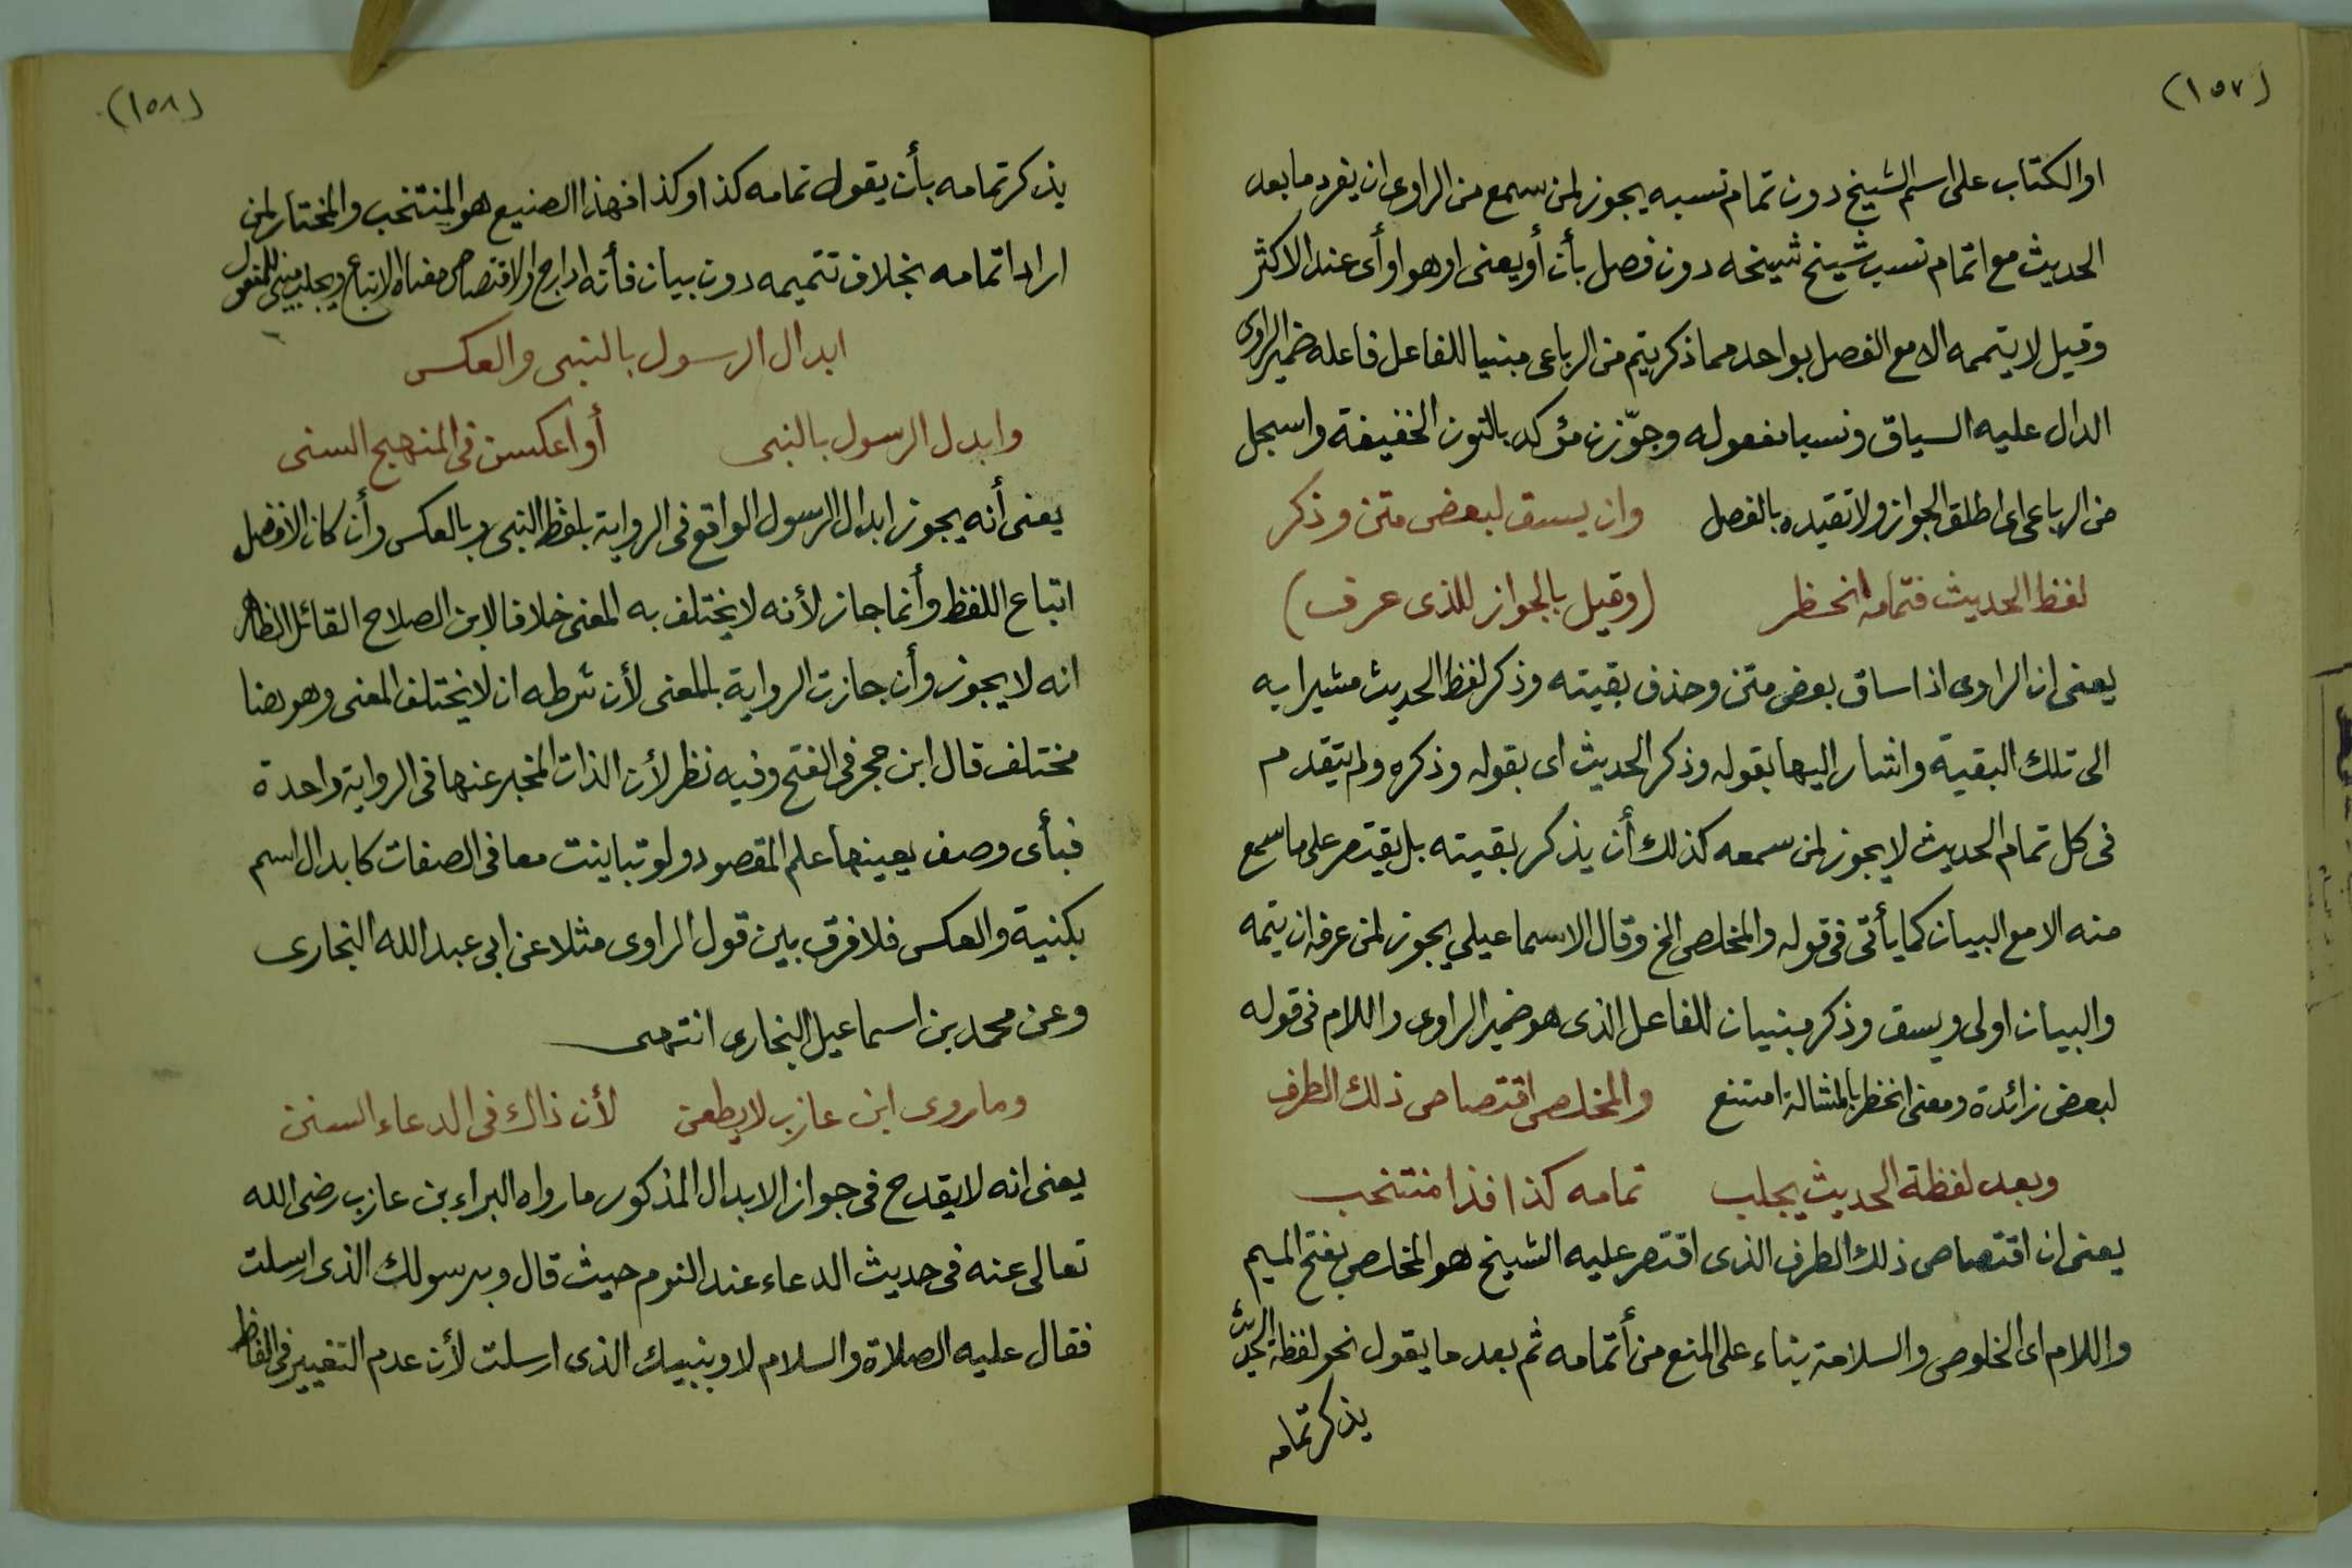 (١٥٧)
او الكتاب على اسم الشيخ دون تمام نسبه يجوز لمن سمع من الراوى ان يفرد ما بعد
الحديث مع اتمام نسب شيخ شيخه دون فصل بأن أو يعنى او هو او أى عند الاكثر
وقيل لا يتممه الا مع الفصل بواحد مما ذكر يتم من الرباعى مبنيا للفاعل فاعله ضمير الراوى
الدال عليه السياق ونسبا مفعوله وجوّزن مؤكد بالنون الخفيفة واسجل
من الرباعى اى اطلق الجواز ولا تقيده بالفصل وان يسق لبعض متن وذكر
لفظ الحديث فتمامه انحظر (وقيل بالجواز للذى عرف)
يعنى ان الراوى اذا ساق بعض متن وحذف بقيته وذكر لفظ الحديث مشيرا به
الى تلك البقية واشار اليها بقوله وذكر الحديث اى بقوله وذكره ولم يتقدم
فى كل تمام الحديث لا يجوز لمن سمعه كذلك أن يذكر بقيته بل يقتصر على ما سمع
منه الا مع البيان كما يأتى فى قوله والمخلص الخ وقال الاسماعيلي يجوز لمن عرفه ان يتمه
والبيان اولى ويسق وذكر مبنيان للفاعل الذى هو ضمير الراوى واللام فى قوله
لبعض زائدة ومعنى انحظر بالمشالة امتنع والمخلص اقتصاص ذلك الطرف
وبعد لفظة الحديث يجلب تمامه كذا فذا منتخب
يعنى ان اقتصاص ذلك الطرف الذى اقتصر عليه الشيخ هو المخلص بفتح الميم
واللام اى الخلوص والسلامة بناء على المنع من أتمامه ثم بعد ما يقول نحو لفظة الحديث
يذكر تمامه
(١٥٨)
يذكر تمامه بأن يقول تمامه كذا وكذا فهذا الصنيع هو المنتخب والمختار لمن
اراد اتمامه بخلاف تتميمه دون بيان فأنه ادراج والاقتصاص معناه الاتباع ويجلب مبنى للمفعول
ابدال الرسول بالنبى والعكس
وابدل الرسول بالنبى أو اعكسن فى المنهج السنى
يعنى أنه يجوز ابدال الرسول الواقع فى الرواية بلفظ النبى وبالعكس وأن كان الافضل
اتباع اللفظ وأنما جاز لأنه لا يختلف به المعنى خلافا لابن الصلاح القائل الظاهر
انه لا يجوز وأن جازت الرواية بالمعنى لأن شرطه ان لا يختلف المعنى وهو هنا
مختلف قال ابن حجر فى الفتح وفيه نظر لأن الذات المخبر عنها فى الرواية واحدة
فبأى وصف يعينها علم المقصود ولو تباينت معا فى الصفات كابدال اسم
بكنية والعكس فلا فرق بين قول الراوى مثلا عن ابى عبد الله البخارى
وعن محمد بن اسماعيل البخارى انتهى
وما روى ابن عازب لا يطعن لأن ذاك فى الدعاء السنن
يعنى انه لا يقدح فى جواز الابدال المذكور ما رواه البراء بن عازب رضى الله
تعالى عنه فى حديث الدعاء عند النوم حيث قال وبرسولك الذى ارسلت
فقال عليه الصلاة والسلام لا وبنبيك الذى ارسلت لأن عدم التغيير فى الفاظ